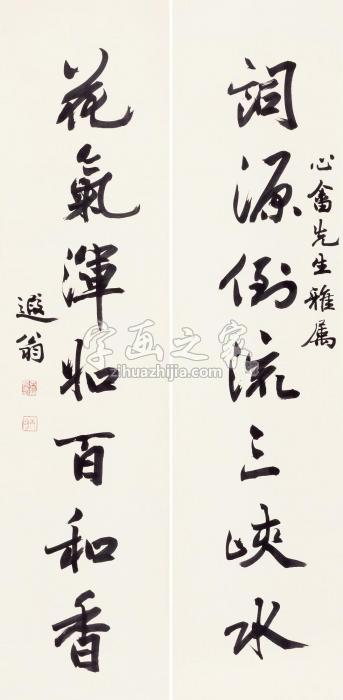 心畬先生雅属
詞源倒流三峽水
花氣渾如百和香
遐翁
字画之家
zihuazhijia.com